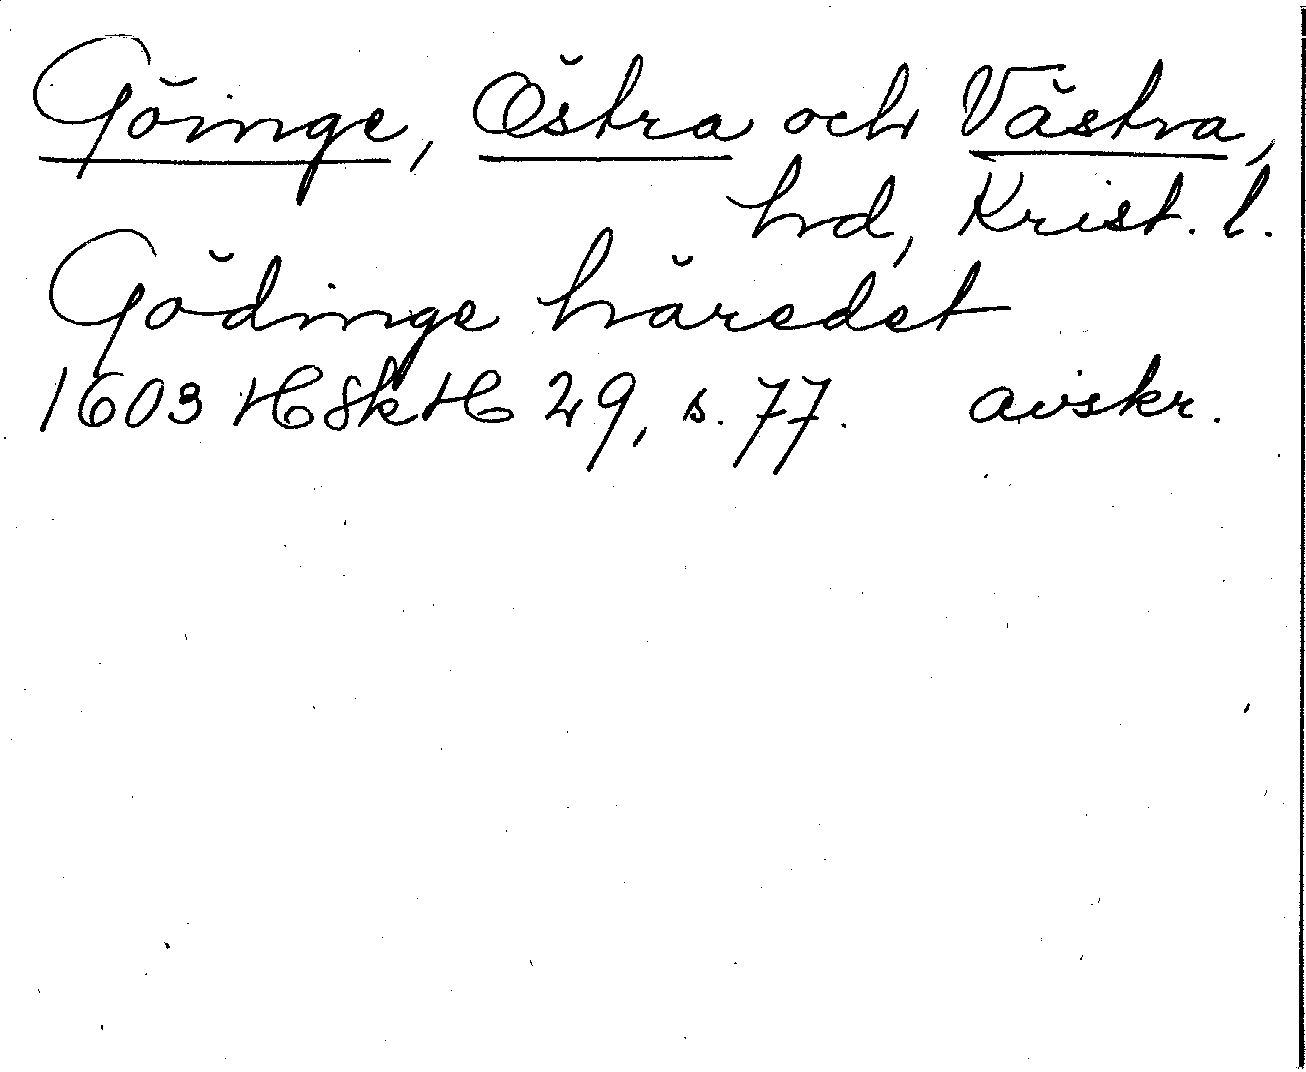 Göinge, Östra och Västra,
hrd, Krist. l.
Gödinge häredet
1603 HSkH 29, s. 77. avskr.